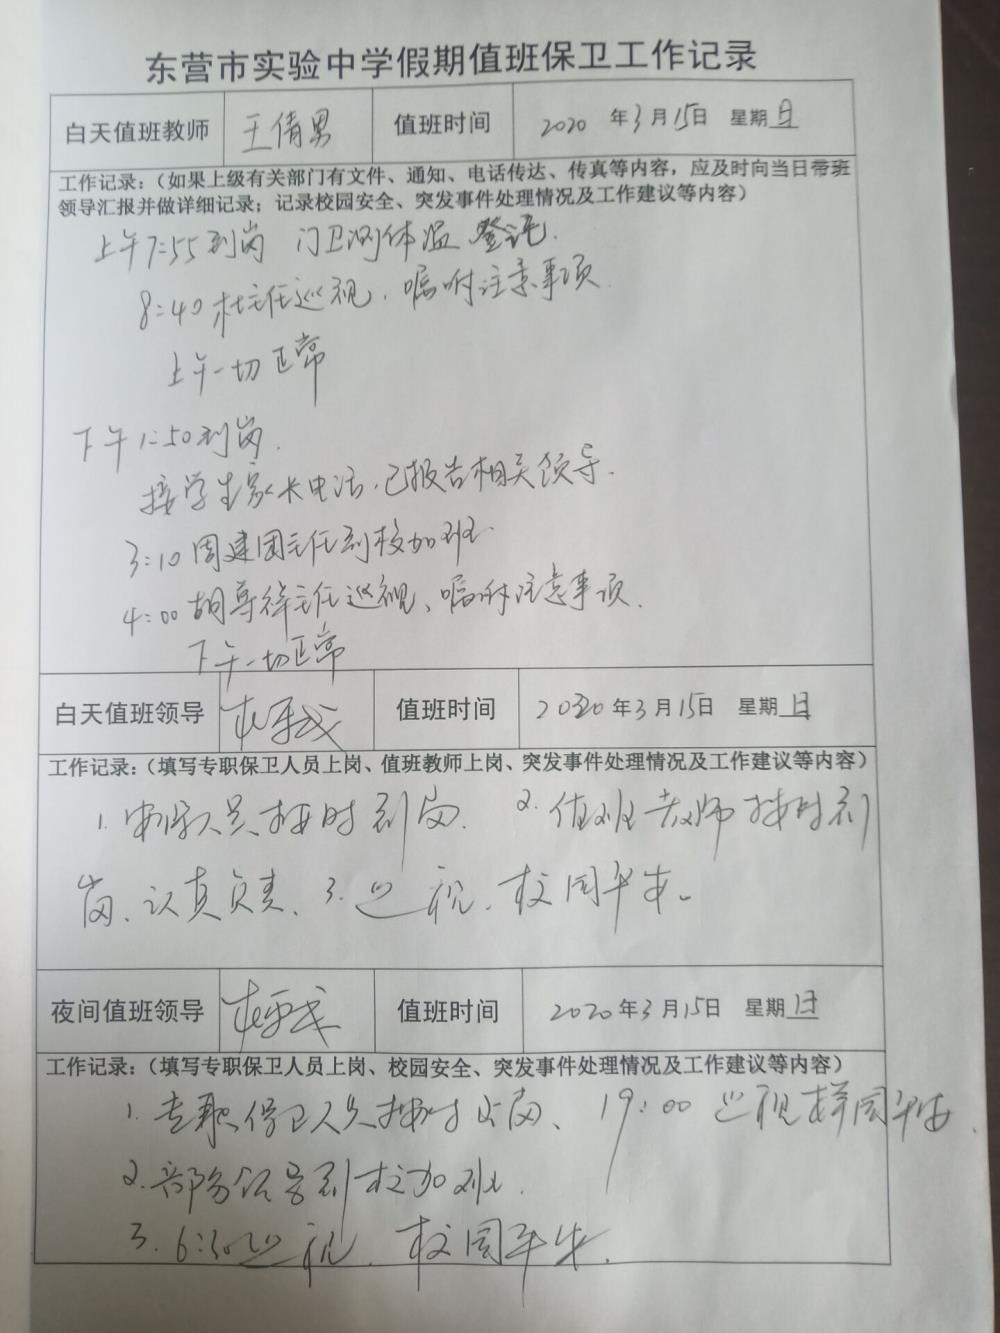 东营市实验中学假期值班保卫工作记录
白天值班教师 王倩男 值班时间 2020 年 3 月 15 日 星期 日
工作记录：（如果上级有关部门有文件、通知、电话传达、传真等内容，应及时向当日带班
领导汇报并做详细记录；记录校园安全、突发事件处理情况及工作建议等内容）
上午7:55到岗 门卫测体温 登记.
8:40 杜主任巡视，嘱咐注意事项
上午一切正常
下午1:50到岗.
接学生家长电话，已报告相关领导.
3:10 周建国主任到校加班
4:00 胡导祥主任巡视、嘱咐注意事项.
下午一切正常
白天值班领导 值班时间 2020 年 3 月 15 日 星期 日
工作记录：（填写专职保卫人员上岗、值班教师上岗、突发事件处理情况及工作建议等内容）
1. 人员按时到岗. 2. 值班老师按时到
岗、认真负责、3. 巡视，校园平安。
夜间值班领导 值班时间 2020 年 3 月 15 日 星期 日
工作记录：（填写专职保卫人员上岗、校园安全、突发事件处理情况及工作建议等内容）
1. 专职保卫人员按时上岗、19:00 巡视校园平安.
2. 部分领导到校加班.
3. 6:30巡视，校园平安.